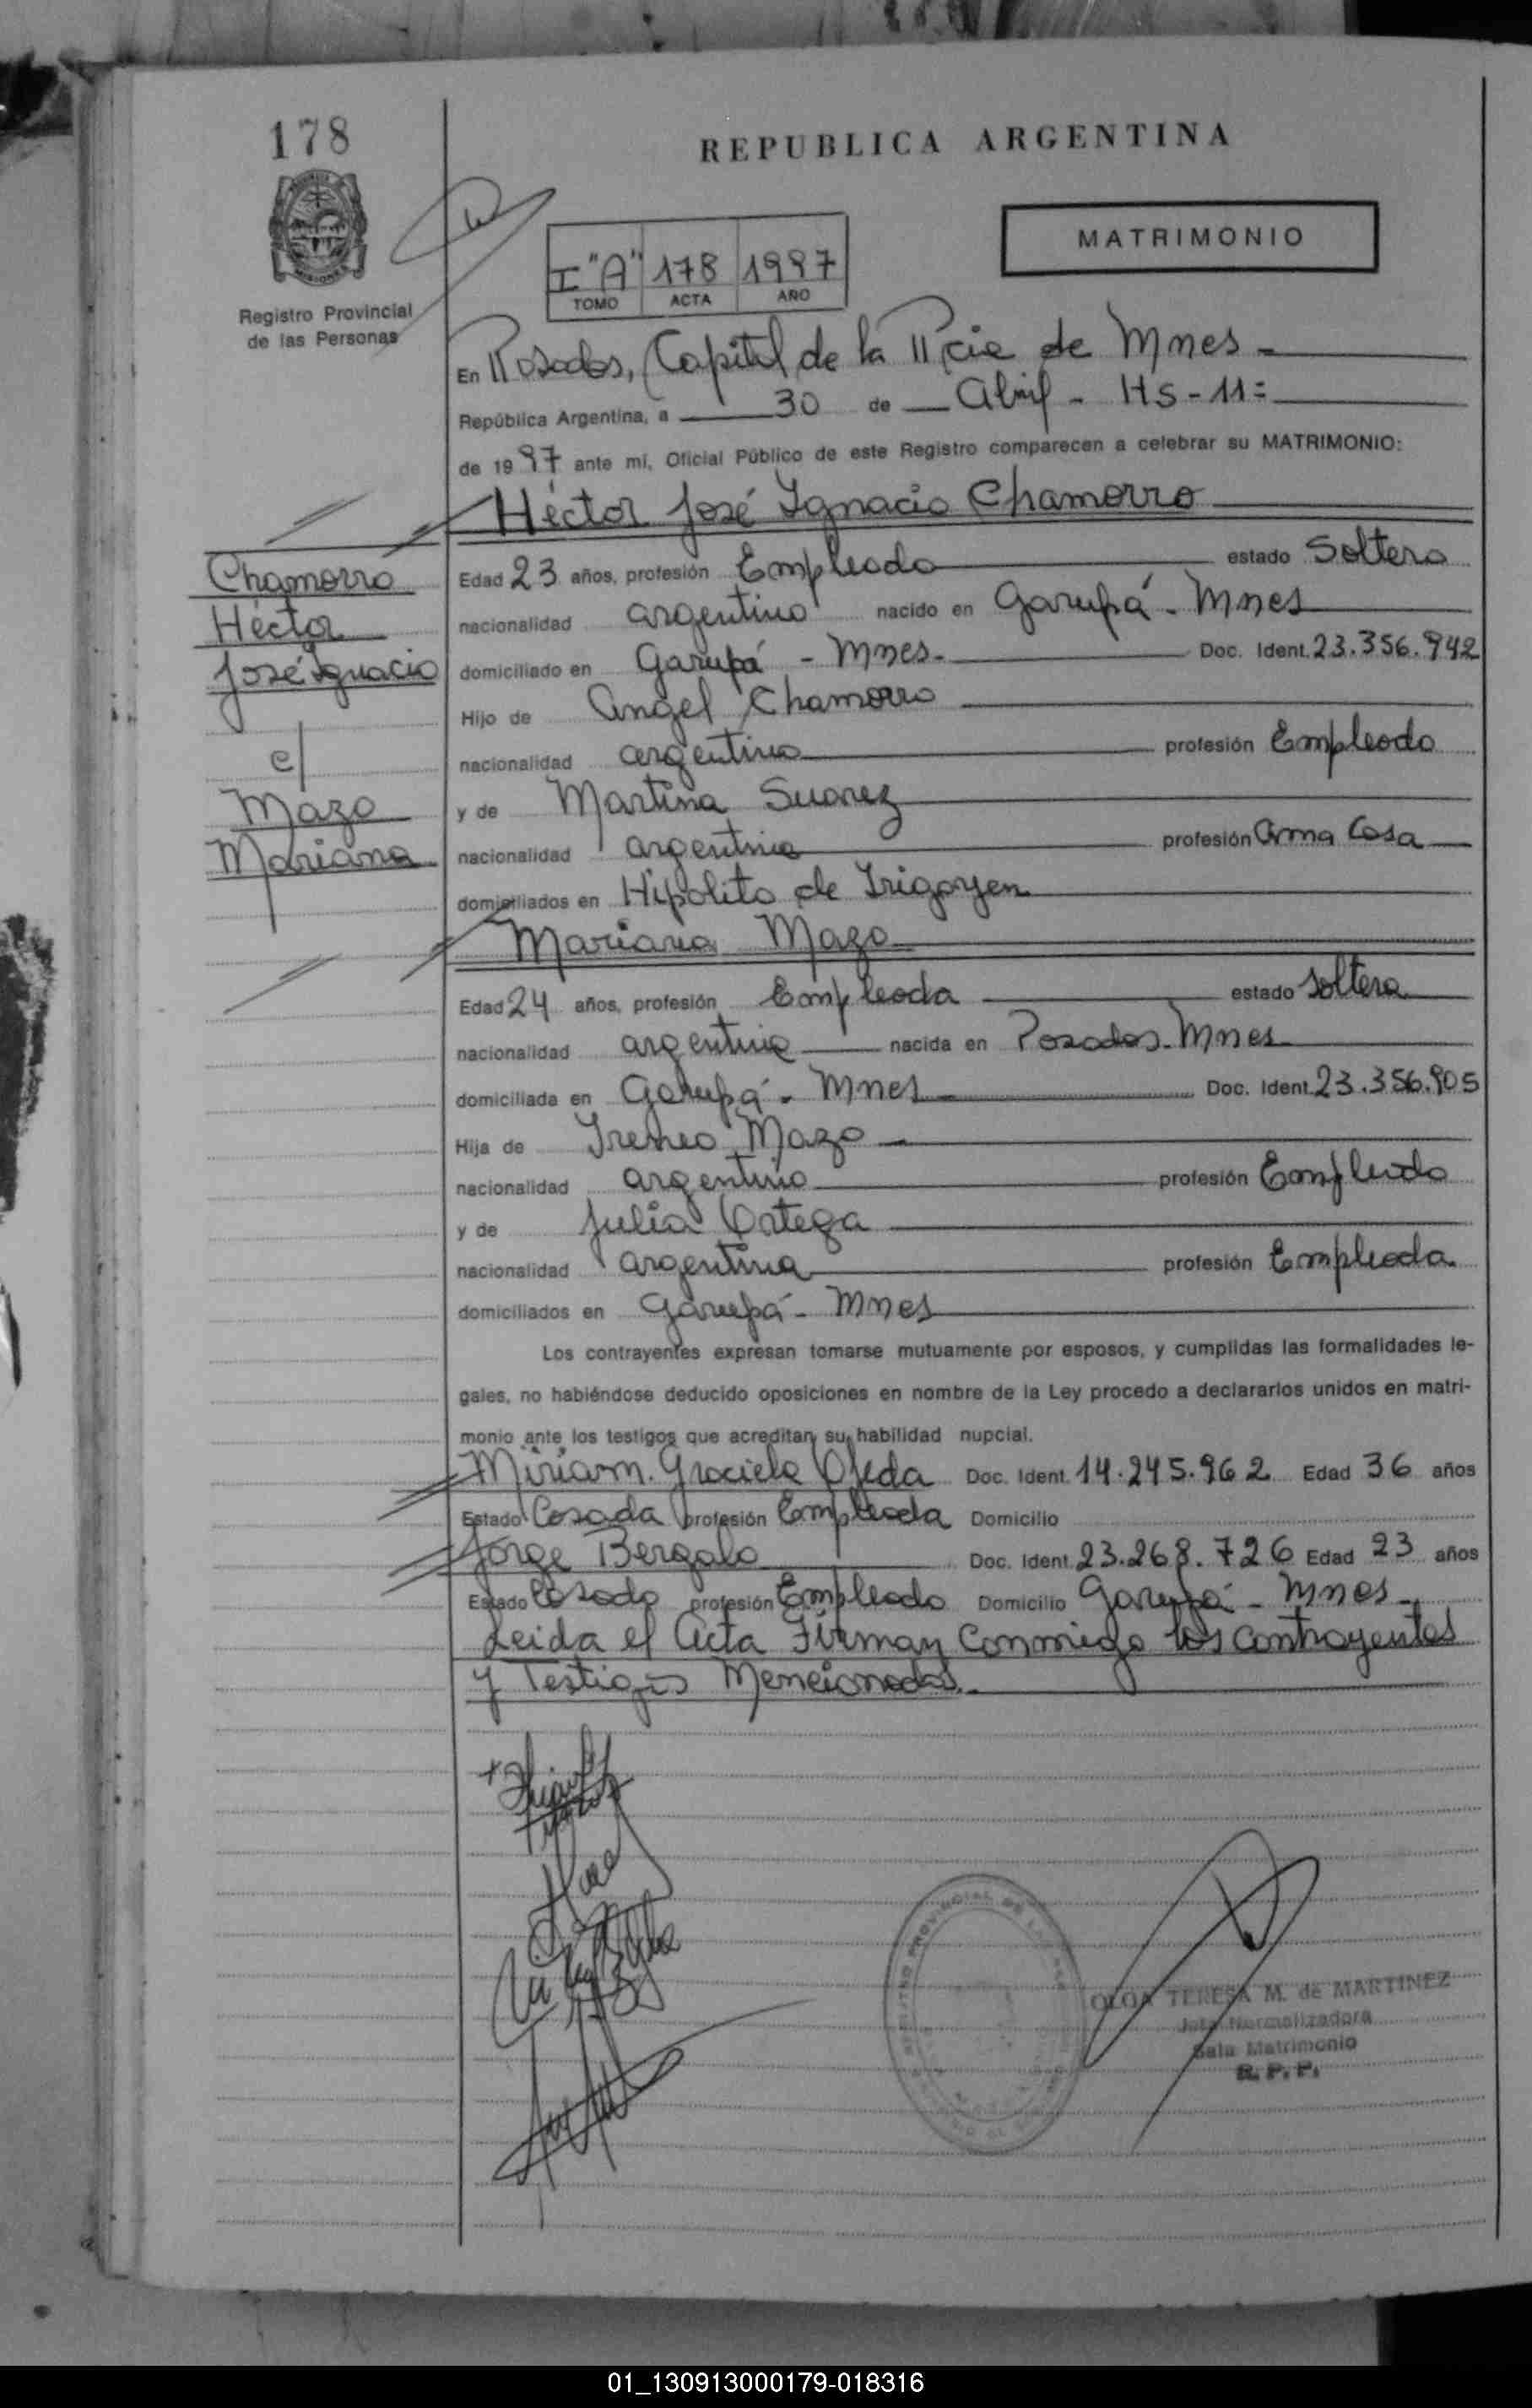 178
REPUBLICA ARGENTINA
MATRIMONIO
I "A" 178 1997
TOMO ACTA AÑO
Registro Provincial
de las Personas
En Posadas, Capital de la Pcia de Mnes -
República Argentina, a 30 de Abril - HS - 11=
de 1997 ante mí, Oficial Público de este Registro comparecen a celebrar su MATRIMONIO:
Héctor José Ignacio Chamorro
Chamorro
Héctor
José Ignacio
c/
Mazo
Mariana
Edad 23 años, profesión Empleado estado Soltero
nacionalidad argentino nacido en Garupá - Mnes
domiciliado en Garupá - Mnes- Doc. Ident. 23.356.942
Hijo de Angel Chamorro
nacionalidad argentino profesión Empleado
y de Martina Suarez
nacionalidad argentina profesión Ama Casa
domiciliados en Hipólito de Irigoyen
Mariana Mazo
Edad 24 años, profesión Empleada estado Soltera
nacionalidad argentina nacida en Posadas - Mnes
domiciliada en Garupá - Mnes Doc. Ident. 23.356.905
Hija de Ireneo Mazo
nacionalidad argentino profesión Empleado
y de Julia Ortega
nacionalidad argentina profesión Empleada
domiciliados en Garupá - Mnes
Los contrayentes expresan tomarse mutuamente por esposos, y cumplidas las formalidades le-
gales, no habiéndose deducido oposiciones en nombre de la Ley procedo a declararlos unidos en matri-
monio ante los testigos que acreditan su habilidad nupcial.
Miriam Graciela Ojeda Doc. Ident. 14.245.962 Edad 36 años
Estado Casada profesión Empleada Domicilio
Jorge Bergalo Doc. Ident. 23.268.726 Edad 23 años
Estado Casado profesión Empleado Domicilio Garupá - Mnes
Leida el Acta Firman Conmigo los Contrayentes
y Testigos Mencionados.
OLGA TERESA M. de MARTINEZ
Jefa Normalizadora
Sala Matrimonio
R. P. P.
01_130913000179-018316